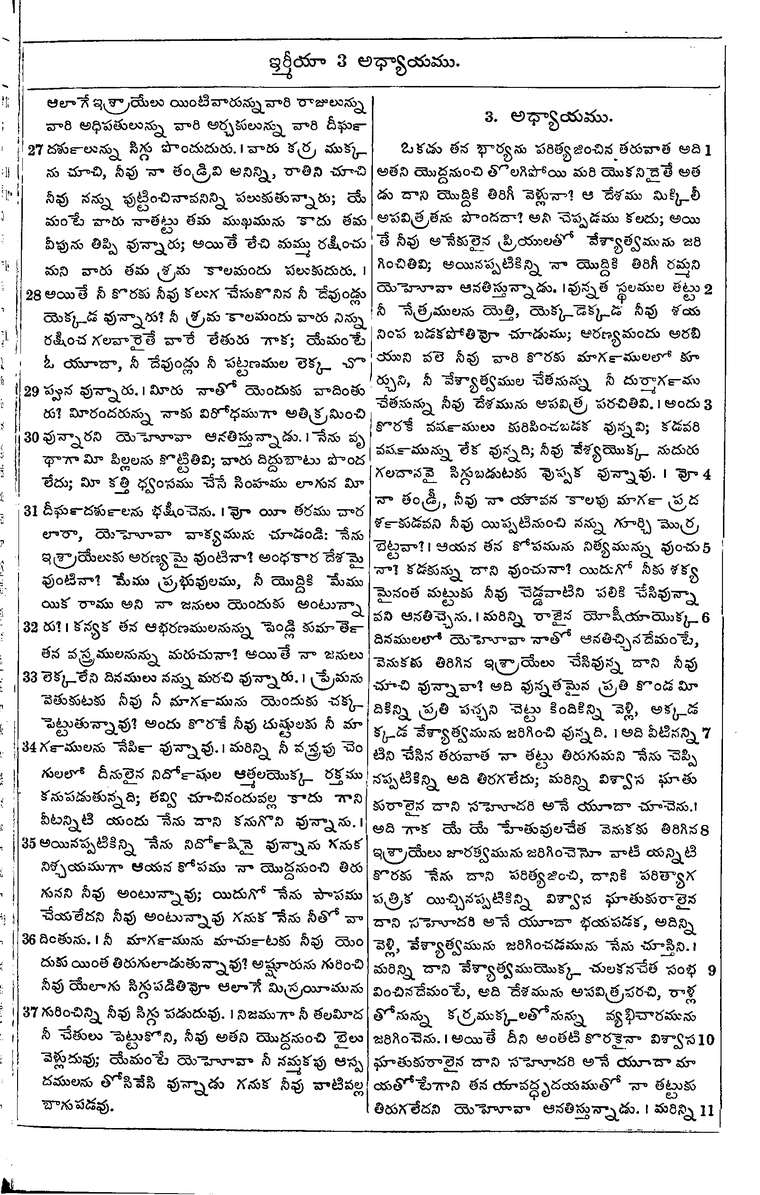 ఇర్మీయా 3 అధ్యాయము.
ఆలాగే ఇశ్రాయేలు యింటివారున్ను వారి రాజులున్ను
వారి అధిపతులున్ను వారి అర్చకులున్ను వారి దీర్ఘ
27 దర్శులున్ను సిగ్గు పొందుదురు. । వారు కర్ర ముక్క
ను చూచి, నీవు నా తండ్రివి అనిన్ని, రాతిని చూచి
నీవు నన్ను పుట్టించినావనిన్ని పలుకుతున్నారు; యే
మంటే వారు నాతట్టు తమ ముఖమును కాదు తమ
వీపును తిప్పి వున్నారు; అయితే లేచి మమ్ము రక్షించు
మని వారు తమ శ్రమ కాలమందు పలుకుదురు. ।
28 అయితే నీ కొరకు నీవు కలుగ చేసుకొనిన నీ దేవుండ్లు
యెక్కడ వున్నారు? నీ శ్రమ కాలమందు వారు నిన్ను
రక్షించ గలవారైతే వారే లేతురు గాక; యేమంటే
ఓ యూదా, నీ దేవుండ్లు నీ పట్టణముల లెక్క చొ
29 ప్పున వున్నారు. । మీరు నాతో యెందుకు వాదింతు
రు? మీరందరున్ను నాకు విరోధముగా అతిక్రమించి
30 వున్నారని యెహోవా ఆనతిస్తున్నాడు. । నేను వృ
థాగా మీ పిల్లలను కొట్టితివి; వారు దిద్దుబాటు పొంద
లేదు; మీ కత్తి ధ్వంసము చేసే సింహము లాగున మీ
31 దీర్ఘదర్శులను భక్షించెను. । వో యీ తరము వార
లారా, యెహోవా వాక్యమును చూడండి: నేను
ఇశ్రాయేలుకు అరణ్యమై వుంటినా? అంధకార దేశమై
వుంటినా? మేము ప్రభువులము, నీ యొద్దికి మేము
యిక రాము అని నా జనులు యెందుకు అంటున్నా
32 రు? । కన్యక తన ఆభరణములనున్ను పెండ్లి కుమార్తె
తన వస్త్రములనున్ను మరుచునా? అయితే నా జనులు
33 లెక్కలేని దినములు నన్ను మరచి వున్నారు. । ప్రేమను
వెతుకుటకు నీవు నీ మార్గమును యెందుకు చక్క
పెట్టుతున్నావు? అందు కొరకే నీవు దుష్టులకు నీ మా
34 ర్గములను నేర్పి వున్నావు. । మరిన్ని నీ వస్త్రపు చెం
గులలో దీనులైన నిర్దోషుల ఆత్మలయొక్క రక్తము
కనుపడుతున్నది; తవ్వి చూచినందువల్ల కాదు గాని
వీటన్నిటి యందు నేను దాని కనుగొని వున్నాను. ।
35 అయినప్పటికిన్ని నేను నిర్దోషినై వున్నాను గనుక
నిశ్చయముగా ఆయన కోపము నా యొద్దనుంచి తిరు
గునని నీవు అంటున్నావు; యిదుగో నేను పాపము
చేయలేదని నీవు అంటున్నావు గనుక నేను నీతో వా
36 దింతును. । నీ మార్గమును మార్చుటకు నీవు యెం
దుకు యింత తిరుగులాడుతున్నావు? అష్షూరును గురించి
నీవు యేలాగు సిగ్గుపడితివో ఆలాగే మిస్రయీమును
37 గురించిన్ని నీవు సిగ్గు పడుదువు. । నిజముగా నీ తలమీద
నీ చేతులు పెట్టుకొని, నీవు అతని యొద్దనుంచి బైలు
వెళ్లుదువు; యేమంటే యెహోవా నీ నమ్మకపు ఆస్ప
దములను తోసివేసి వున్నాడు గనుక నీవు వాటివల్ల
బాగుపడవు.
3. అధ్యాయము.
ఒకడు తన భార్యను పరిత్యజించిన తరువాత అది 1
అతని యొద్దనుంచి తొలగిపోయి మరి యొకనిదైతే అత
డు దాని యొద్దికి తిరిగీ వెళ్లునా? ఆ దేశము మిక్కిలీ
అపవిత్రతను పొందదా? అని చెప్పడము కలదు; అయి
తే నీవు అనేకులైన ప్రియులతో వేశ్యాత్వమును జరి
గించితివి; అయినప్పటికిన్ని నా యొద్దికి తిరిగీ రమ్మని
యెహోవా ఆనతిస్తున్నాడు. । వున్నత స్థలముల తట్టు 2
నీ నేత్రములను యెత్తి, యెక్కడెక్కడ నీవు శయ
నింప బడకపోతివో చూడుము; ఆరణ్యమందు అరబి
యుని వలె నీవు వారి కొరకు మార్గములలో కూ
ర్చుని, నీ వేశ్యాత్వముల చేతనున్ను నీ దుర్మార్గము
చేతనున్ను నీవు దేశమును అపవిత్ర పరచితివి. । అందు 3
కొరకే వర్షములు కురిపించబడక వున్నవి; కడవరి
వర్షమున్ను లేక వున్నది; నీవు వేశ్యయొక్క నుదురు
గలదానవై సిగ్గుబడుటకు వొప్పక వున్నావు. । వో 4
నా తండ్రీ, నీవు నా యౌవన కాలపు మార్గ ప్రద
ర్శకుడవని నీవు యిప్పటినుంచి నన్ను గూర్చి మొర్ర
బెట్టవా? । ఆయన తన కోపమును నిత్యమున్ను వుంచు 5
నా? కడకున్ను దాని వుంచునా? యిదుగో నీకు శక్య
మైనంత మట్టుకు నీవు చెడ్డవాటిని పలికి చేసివున్నా
వని ఆనతిచ్చెను. । మరిన్ని రాజైన యోషీయాయొక్క 6
దినములలో యెహోవా నాతో ఆనతిచ్చినదేమంటే,
వెనుకకు తిరిగిన ఇశ్రాయేలు చేసివున్న దాని నీవు
చూచి వున్నావా? అది వున్నతమైన ప్రతి కొండ మీ
దికిన్ని ప్రతి పచ్చని చెట్టు కిందికిన్ని వెళ్లి, అక్కడ
క్కడ వేశ్యాత్వమును జరిగించి వున్నది. । అది వీటినన్ని 7
టిని చేసిన తరువాత నా తట్టు తిరుగుమని నేను చెప్పి
నప్పటికిన్ని అది తిరగలేదు; మరిన్ని విశ్వాస ఘాతు
కురాలైన దాని సహోదరి అనే యూదా చూచెను. ।
అది గాక యే యే హేతువులచేత వెనుకకు తిరిగిన 8
ఇశ్రాయేలు జారత్వమును జరిగించెనో వాటి యన్నిటి
కొరకు నేను దాని పరిత్యజించి, దానికి పరిత్యాగ
పత్రిక యిచ్చినప్పటికిన్ని విశ్వాస ఘాతుకురాలైన
దాని సహోదరి అనే యూదా భయపడక, అదిన్ని
వెళ్లి, వేశ్యాత్వమును జరిగించడమును నేను చూస్తిని. ।
మరిన్ని దాని వేశ్యాత్వముయొక్క చులకనచేత సంభ 9
వించినదేమంటే, అది దేశమును అపవిత్రపరచి, రాళ్ల
తోనున్ను కర్రముక్కలతోనున్ను వ్యభిచారమును
జరిగించెను. । అయితే దీని అంతటి కొరకైనా విశ్వాస 10
ఘాతుకురాలైన దాని సహోదరి అనే యూదా మా
యతోటేగాని తన యావద్ధృదయముతో నా తట్టుకు
తిరుగలేదని యెహోవా ఆనతిస్తున్నాడు. । మరిన్ని 11